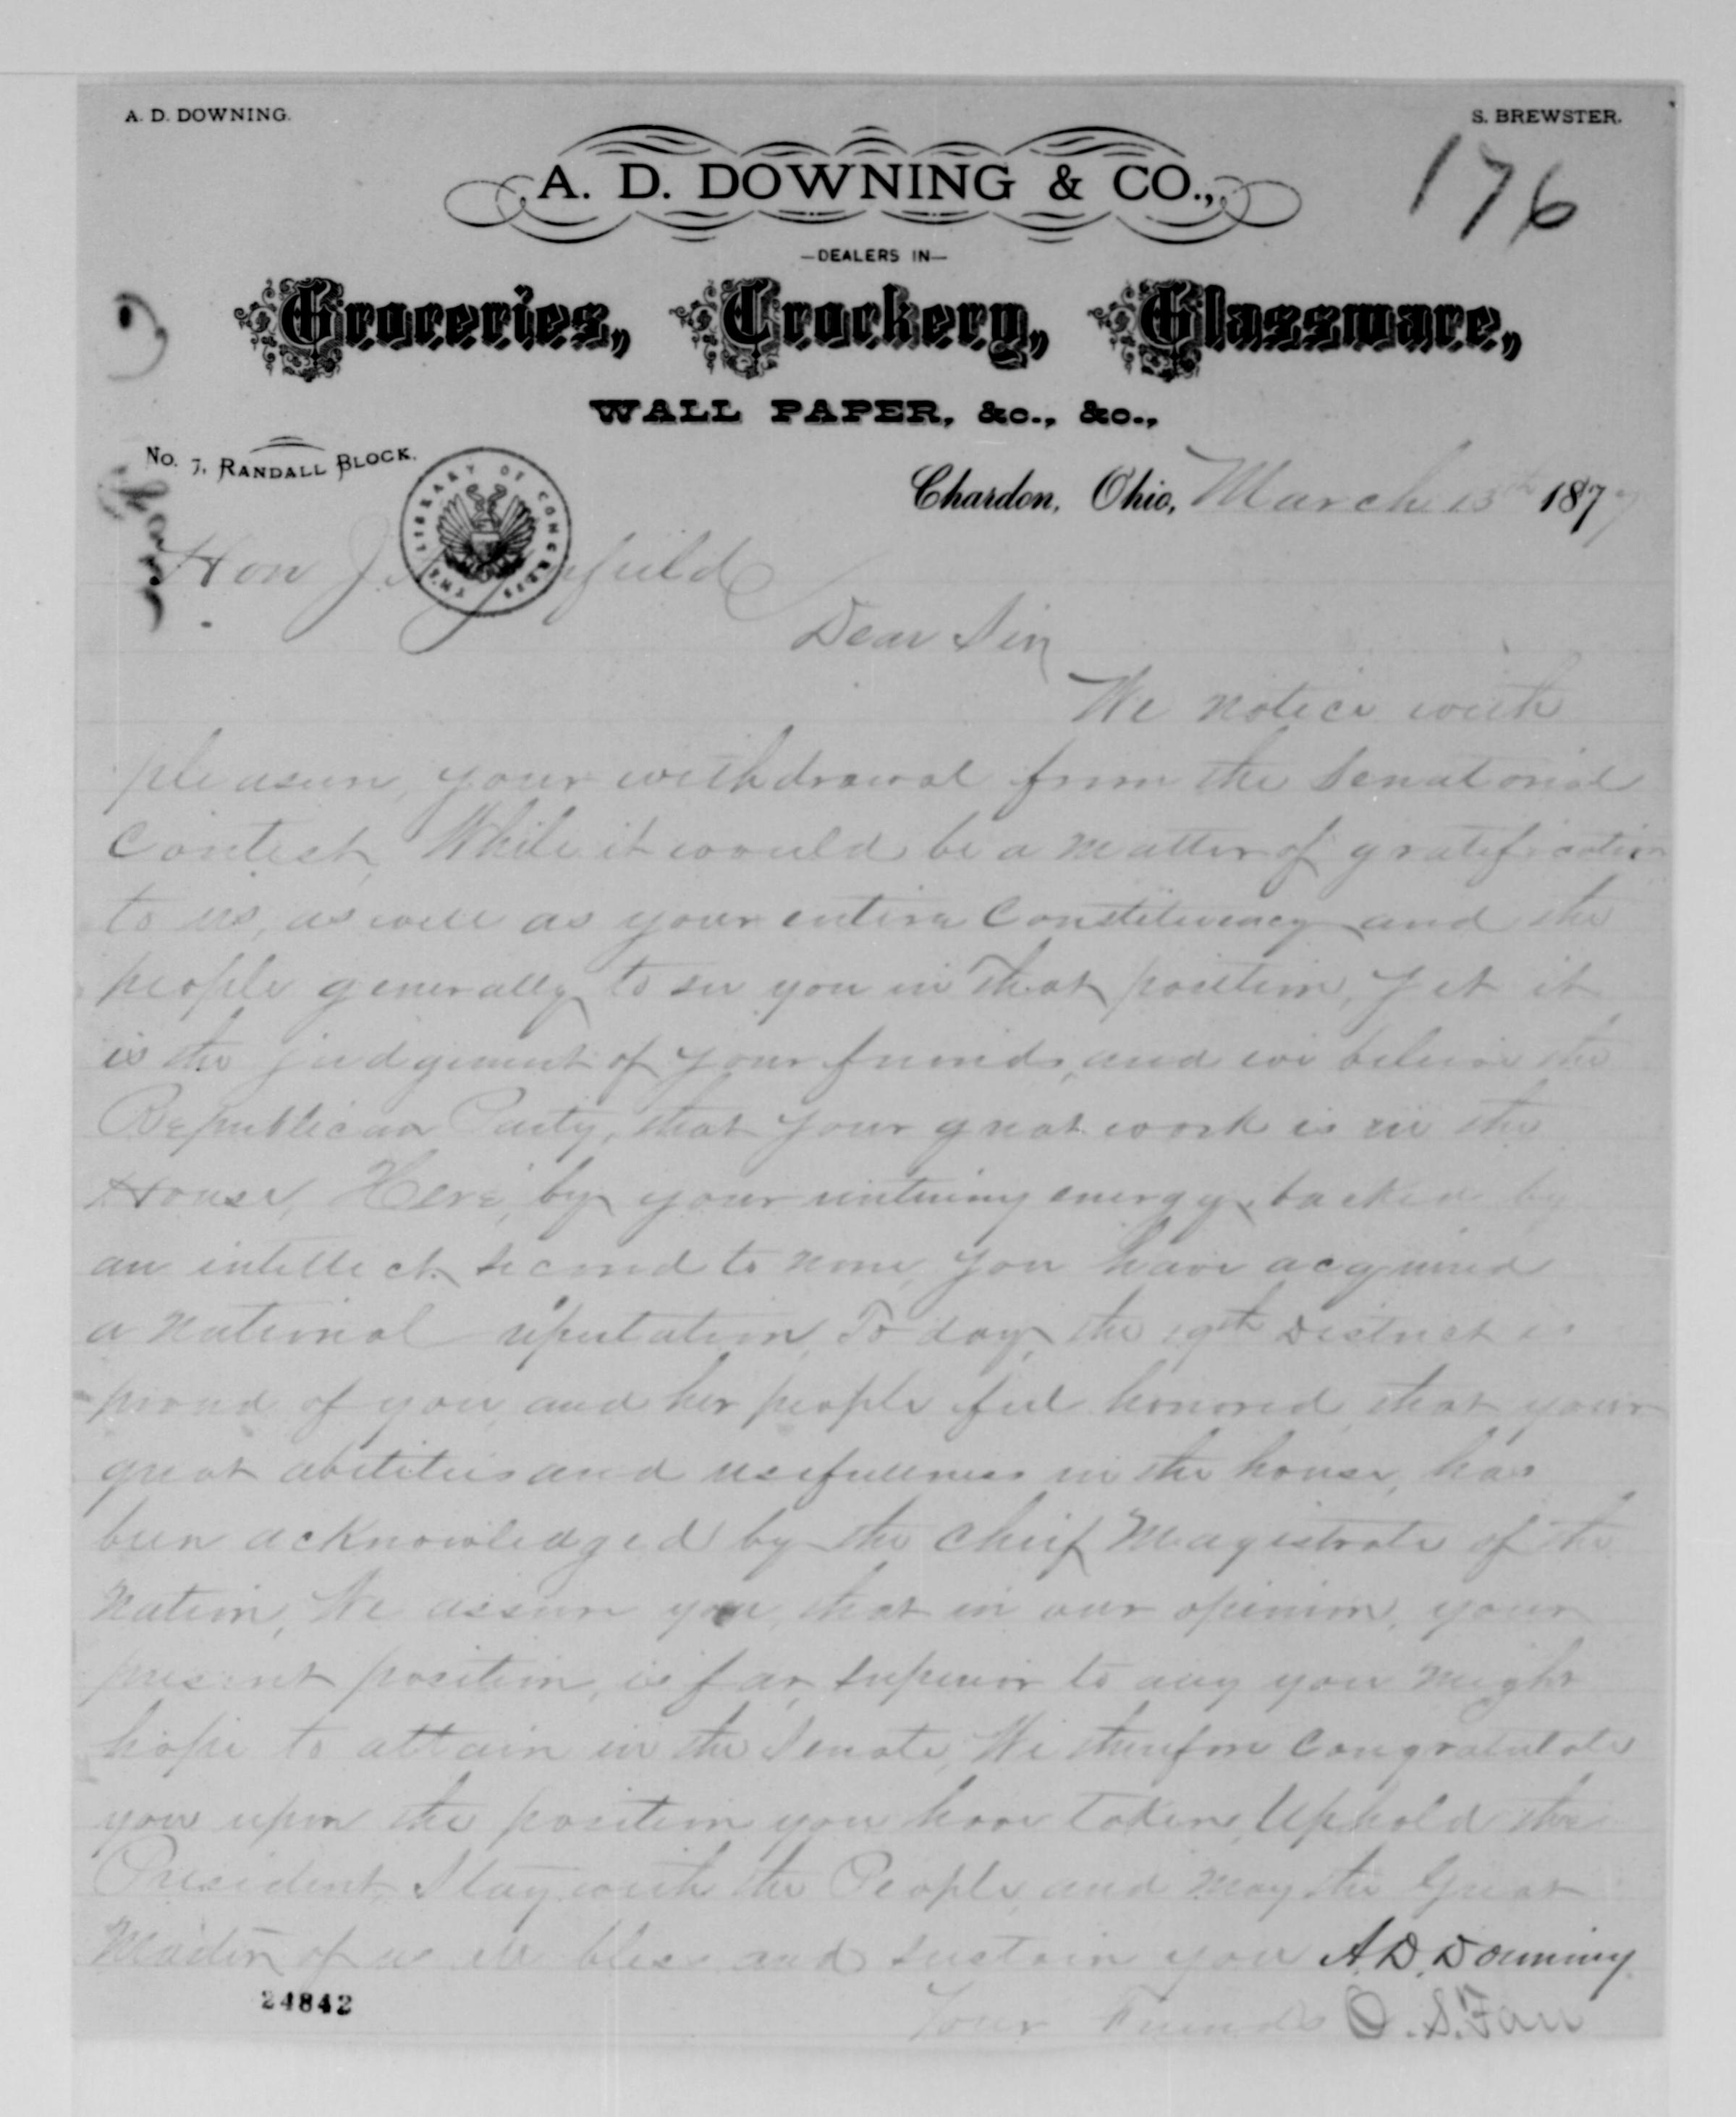 A. D. DOWNING.
S. BREWSTER.
176
A. D. DOWNING & CO.,
—DEALERS IN—
Groceries, Crockery, Glassware,
WALL PAPER, &c., &c.,
No. 7, RANDALL BLOCK.
THE LIBRARY OF CONGRESS
Chardon, Ohio, March 13th 1877
Hon J. A. Garfield
Dear Sir
We notice with
pleasure, your withdrawal from the Senatorial
Contest, While it would be a matter of gratification
to us, as well as your entire Constituency and the
people generally to see you in that position, Yet it
is the judgement of your friends, and we believe the
Republican Party, that your great work is in the
House, Here, by your untiring energy, backed by
an intellect second to none, you have acquired
a national reputation, To day, the 19th District is
proud of you, and her people feel honored, that your
great abilities and usefullness in the house, has
been acknowledged by the Chief Magistrate of the
Nation, We assure you, that in our opinion, your
present position, is far, superior to any you might
hope to attain in the Senate, We therefore Congratulate
you upon the position you have taken, Uphold the
President, Stay with the People, and may the Great
Master of us all bless and sustain you A. D. Downing
Your Friends O. S. Farr
24842